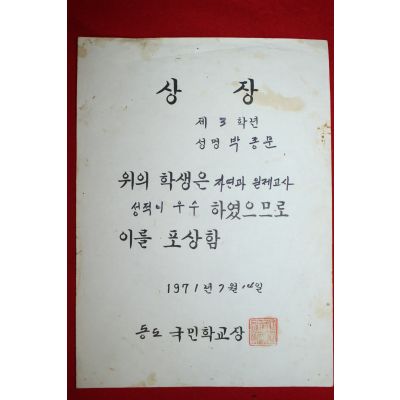 상 장
제 3 학년
성명 박종문
위의 학생은 자연과 월제고사
성적이 우수 하였으므로
이를 포상함
1971년 7월 14일
동도 국민학교장